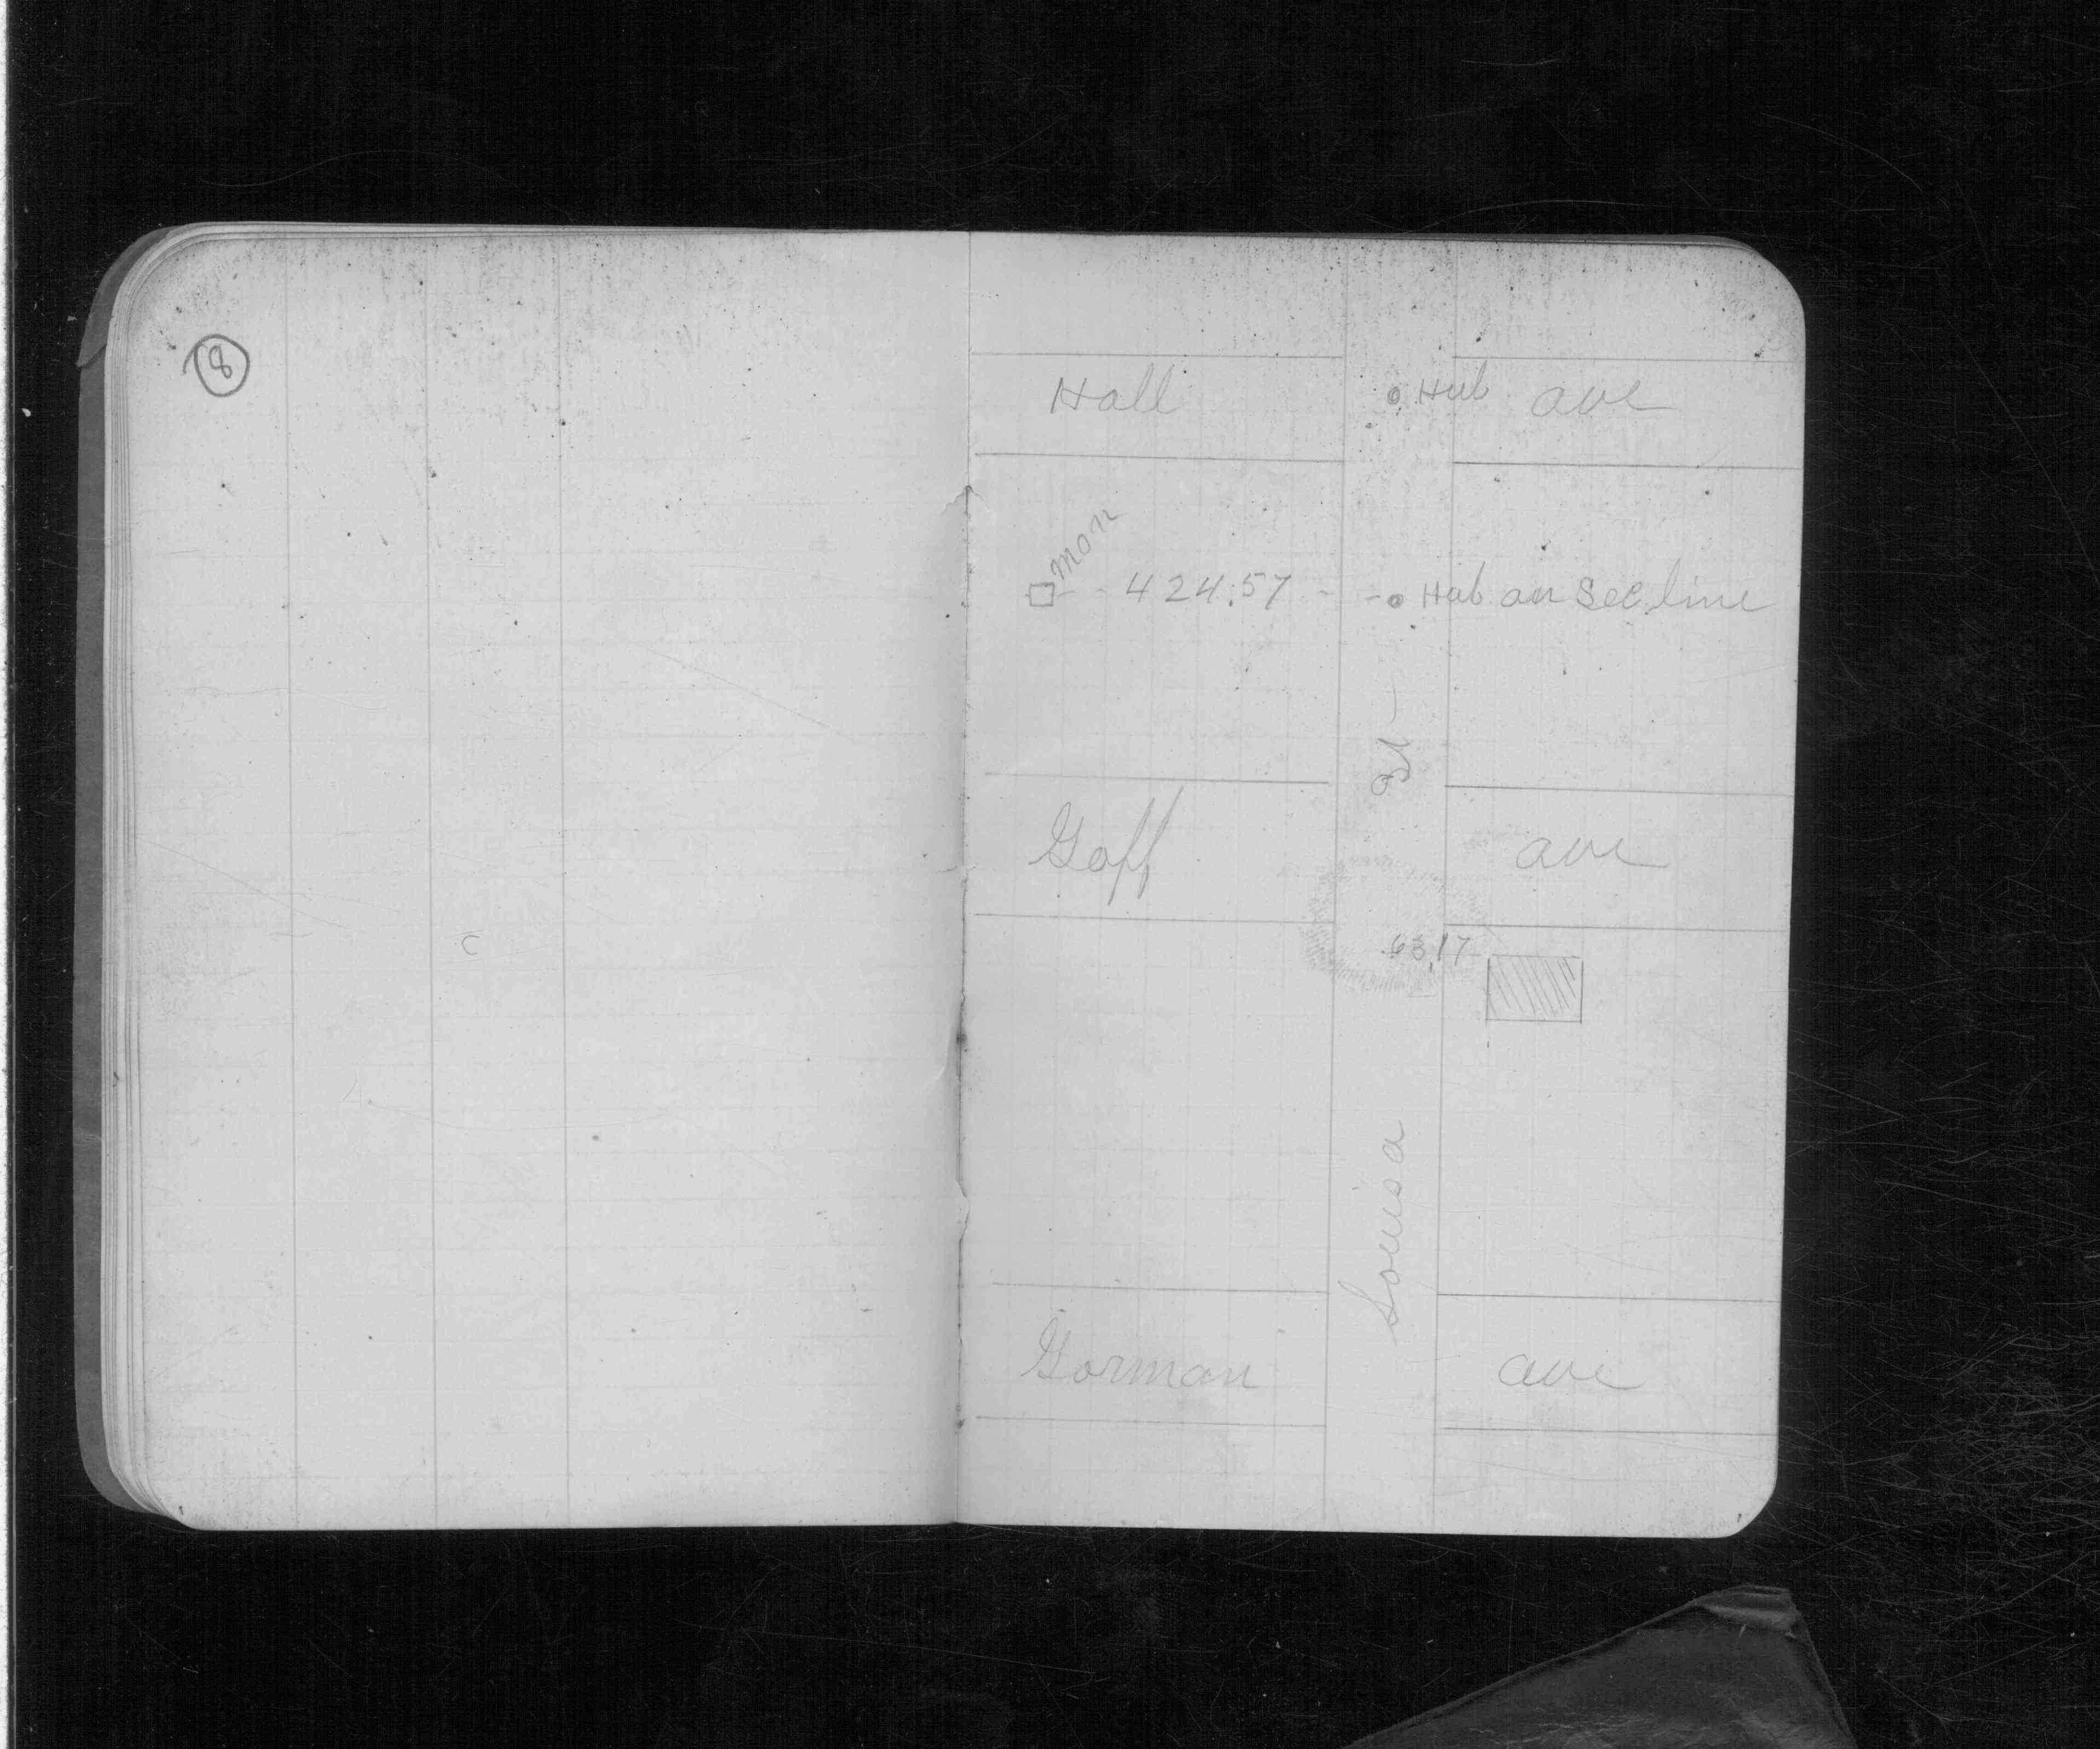 8
Hall Hub ave
mon
424.57 Hub on Sec. line
St
Goff ave
63.17
Louisa
Gorman ave